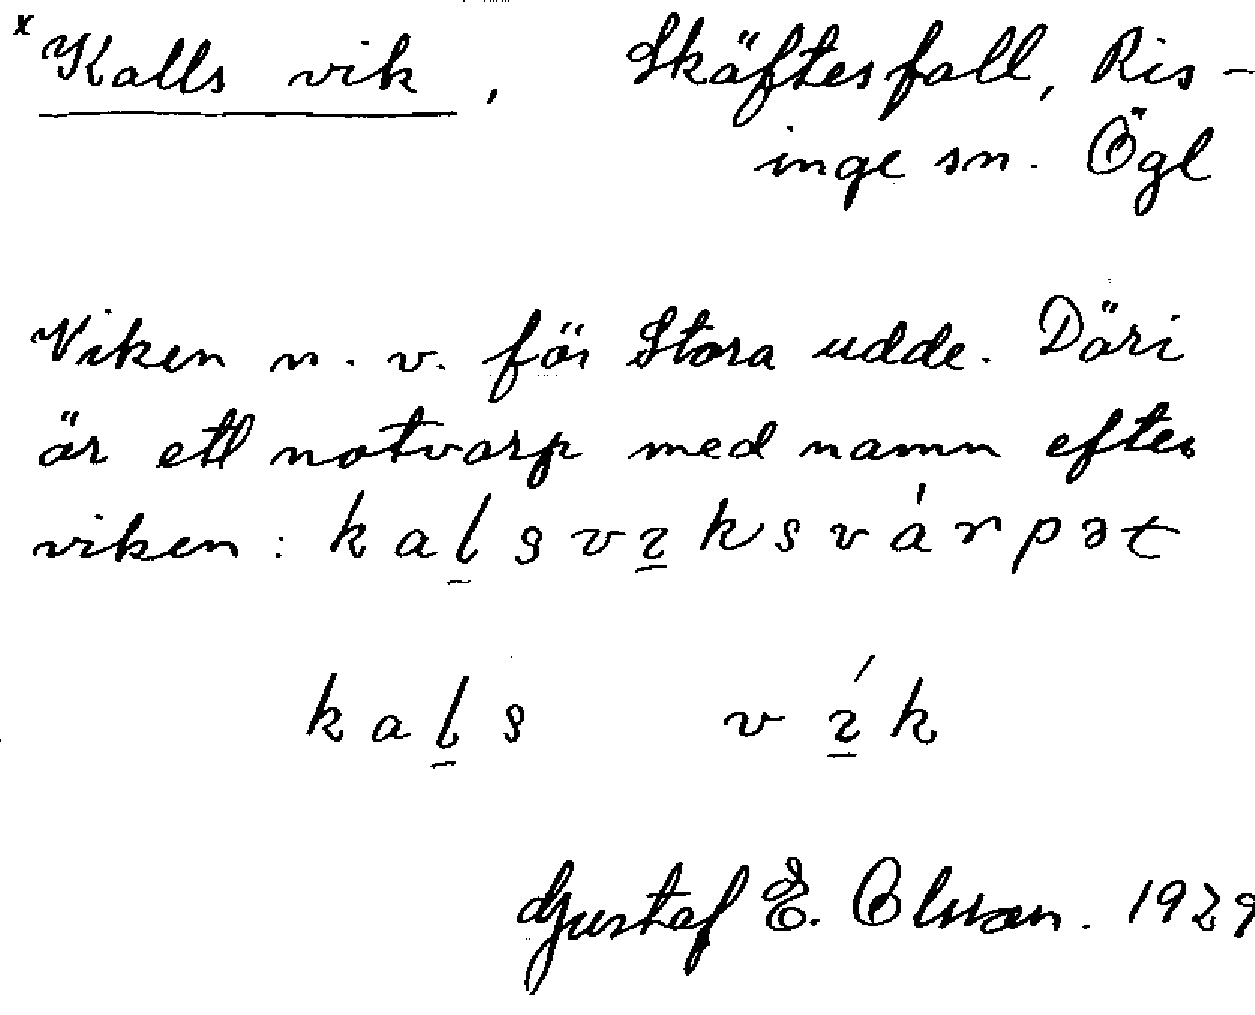 x Kalls vik, Skäftesfall, Ris-
inge sn. Ögl
Viken n. v. för Stora udde. Däri
är ett notvarp med namn efter
viken: kal̲svɪ̲ksvárpət
kal̲s vɪ̲́k
Gustaf E. Olsson. 1929